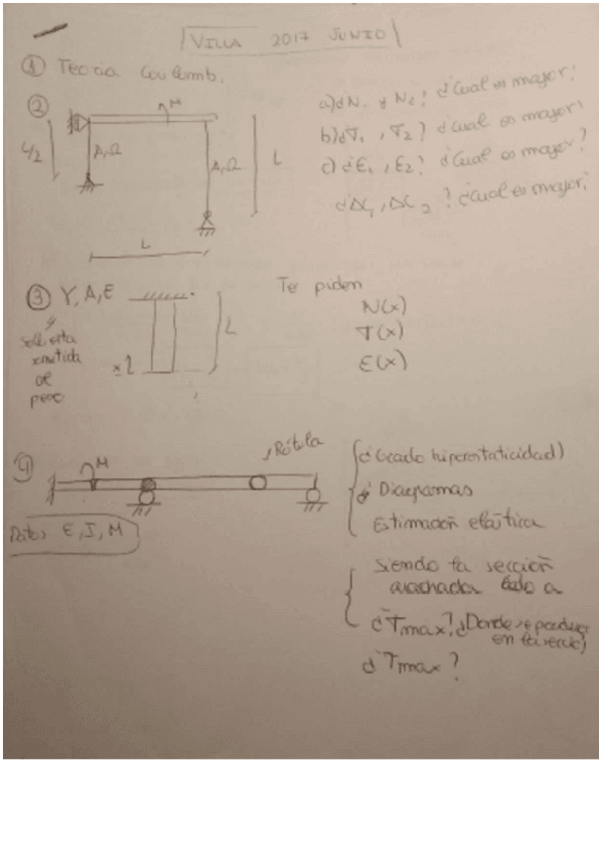 VILLA 2017 JUNIO
① Teoria Coulomb.
②
M
L/2
A, Ω
A, Ω
L
L
a) ¿N₁ y N₂? ¿Cual es mayor?
b) ¿T₁, T₂? ¿Cual es mayor?
c) ¿E₁, E₂? ¿Cual es mayor?
¿ΔL₁, ΔL₂? ¿Cual es mayor?
③ Y, A, E
y
solo esta
de
peso
L
x
Te piden
N(x)
T(x)
E(x)
4)
M
Rótula
Datos E, I, M
¿Grado hiperestaticidad)
Diagramas
Estimación elástica
Siendo la sección
lado a
¿Tmax? ¿Donde se produce
en la sección)
¿Tmax?